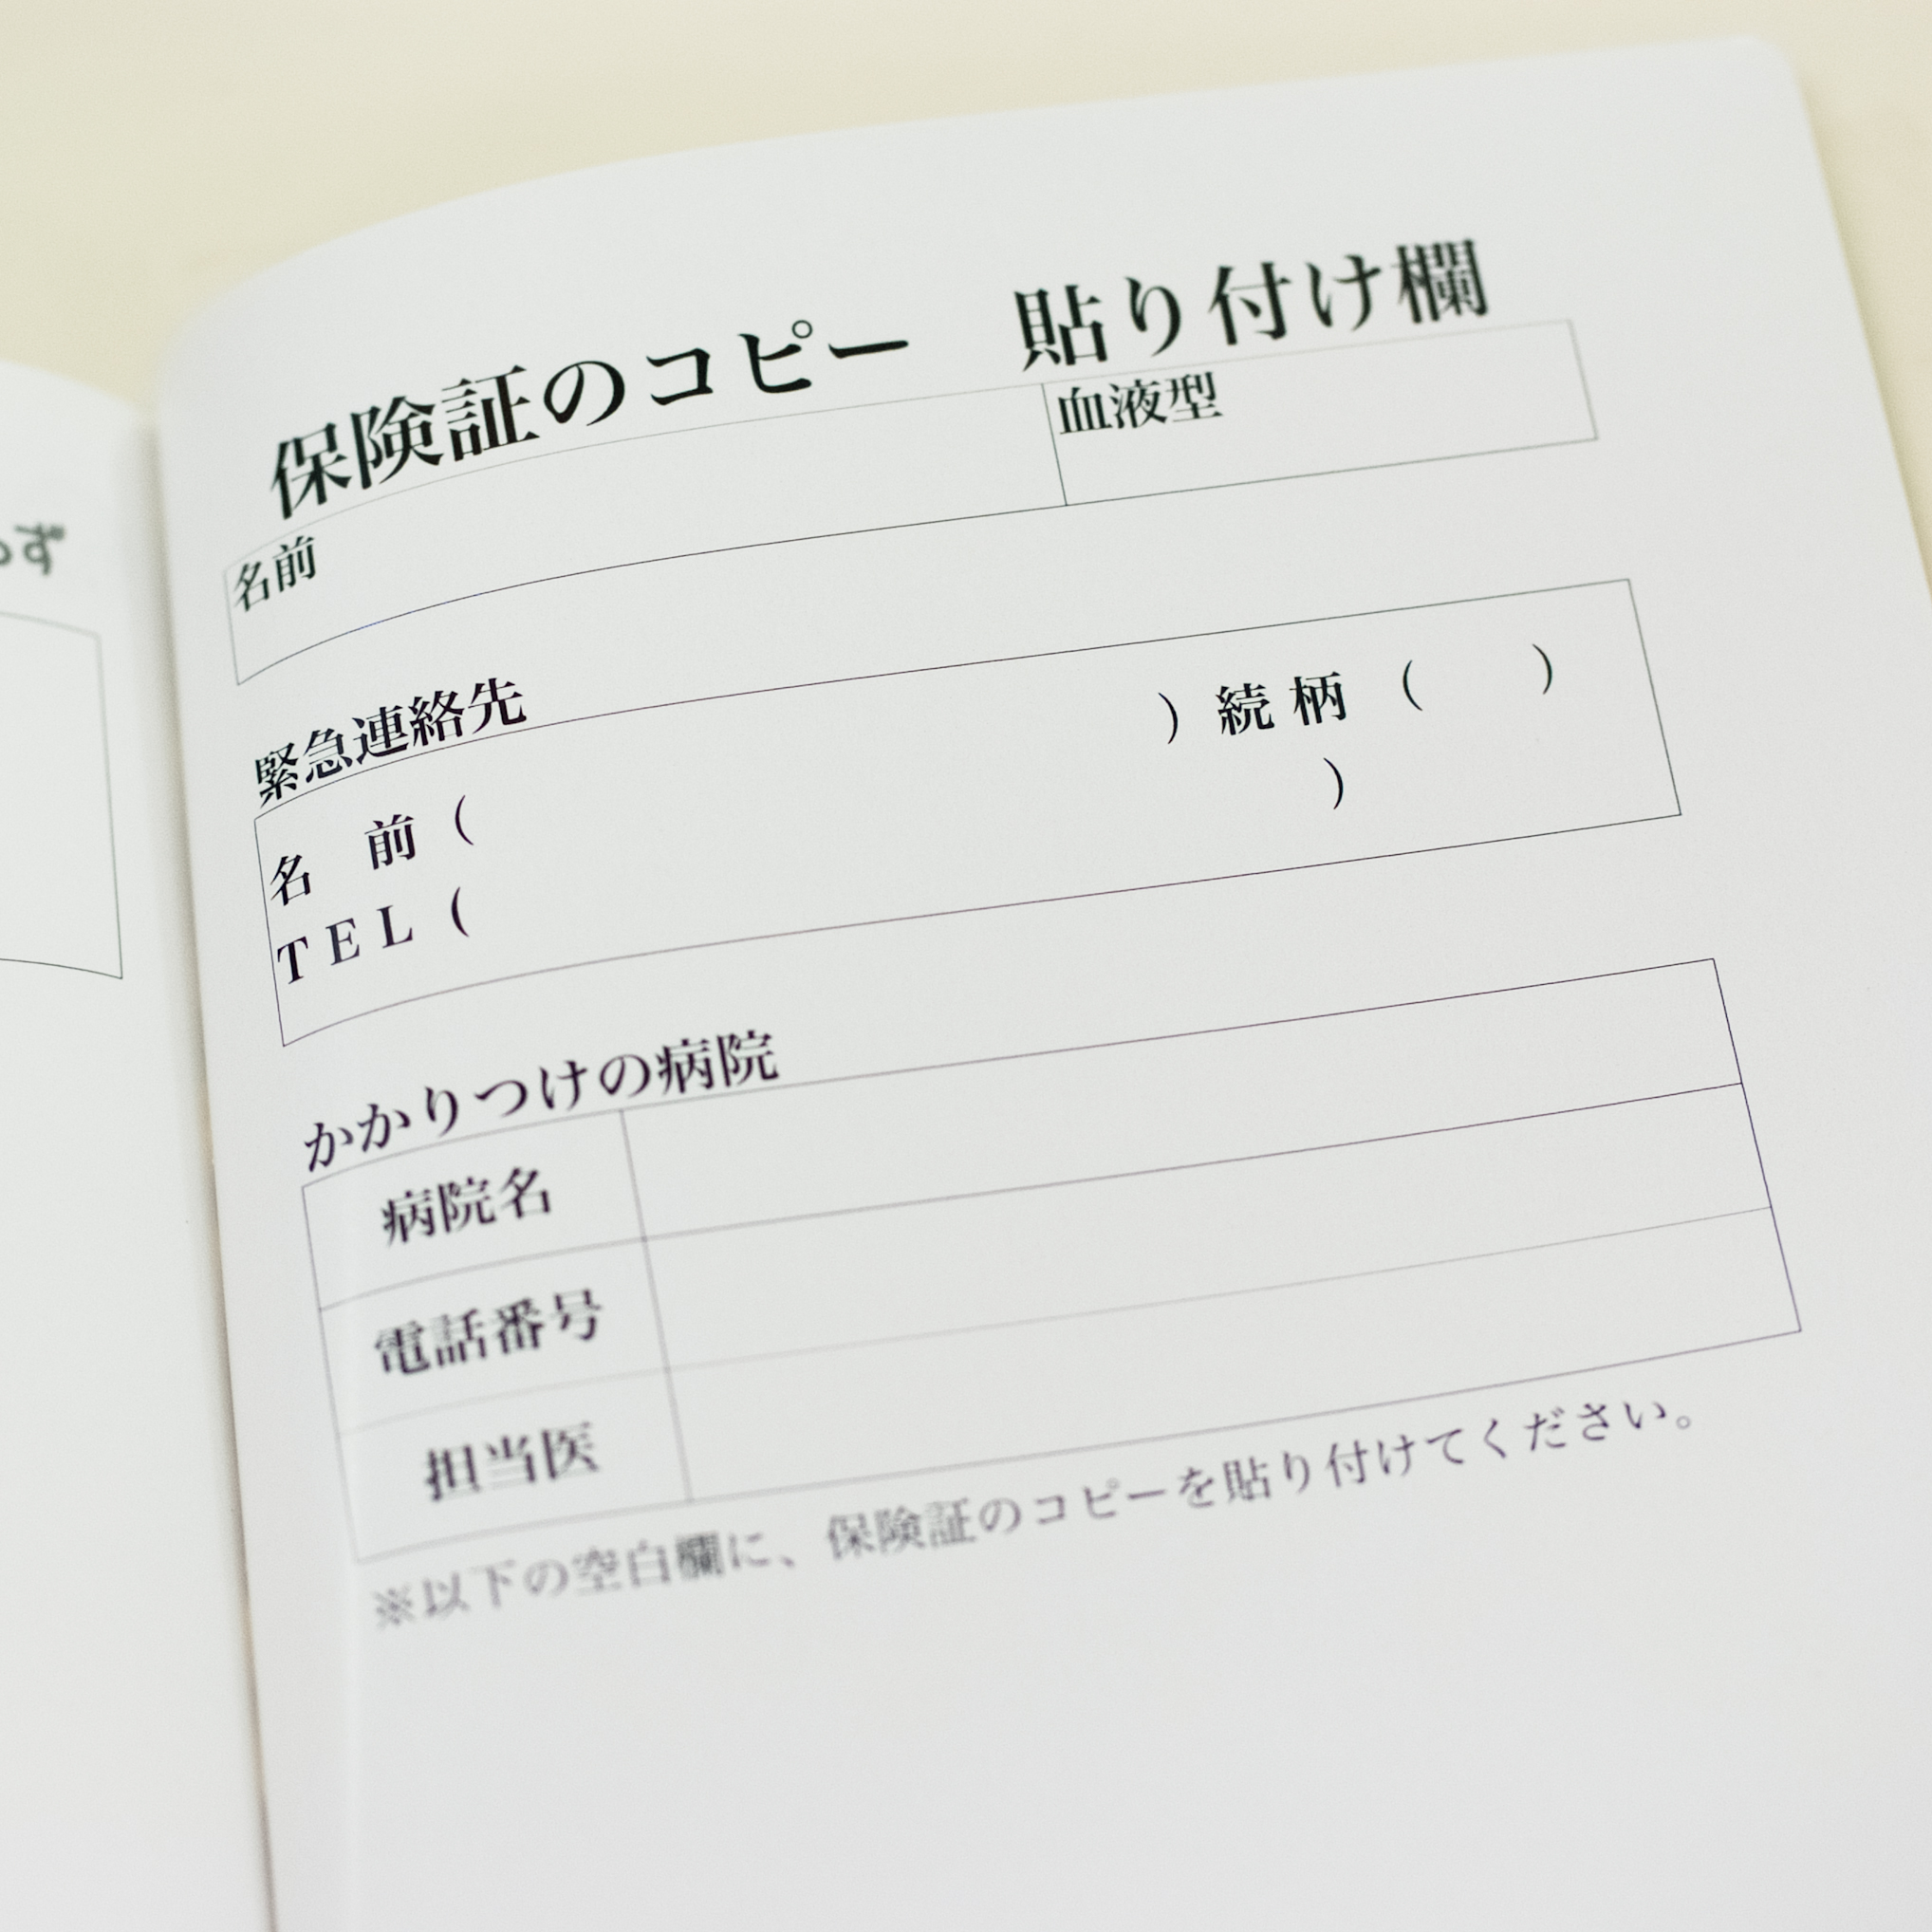 保険証のコピー　貼り付け欄
名前
血液型
緊急連絡先
名　前（　　　　　　　　　　）続柄（　　）
TEL（　　　　　　　　　　　　）
かかりつけの病院
病院名
電話番号
担当医
※以下の空白欄に、保険証のコピーを貼り付けてください。